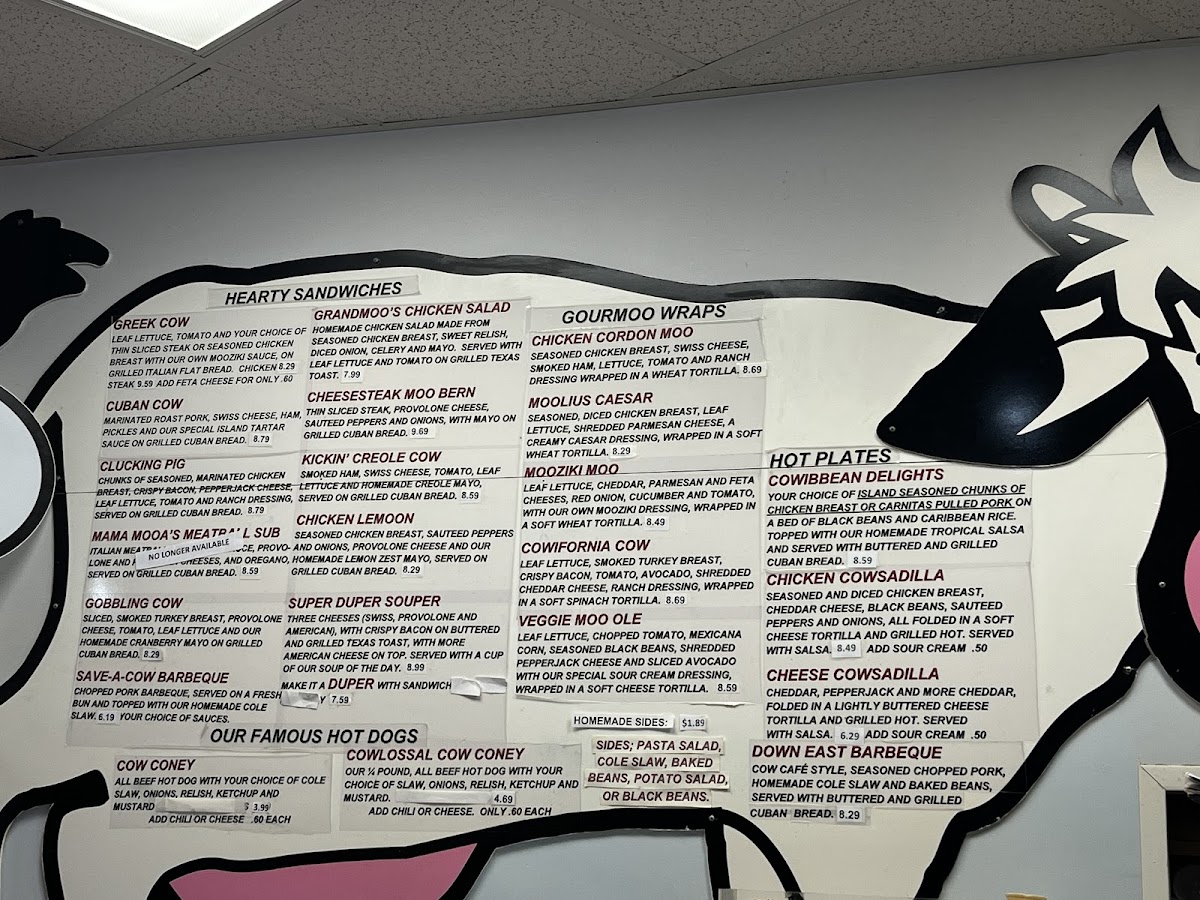 HEARTY SANDWICHES
GREEK COW
LEAF LETTUCE, TOMATO AND YOUR CHOICE OF
THIN SLICED STEAK OR SEASONED CHICKEN
BREAST WITH OUR OWN MOOZIKI SAUCE, ON
GRILLED ITALIAN FLAT BREAD. CHICKEN 8.29
STEAK 9.59 ADD FETA CHEESE FOR ONLY .60
CUBAN COW
MARINATED ROAST PORK, SWISS CHEESE, HAM,
PICKLES AND OUR SPECIAL ISLAND TARTAR
SAUCE ON GRILLED CUBAN BREAD. 8.79
CLUCKING PIG
CHUNKS OF SEASONED, MARINATED CHICKEN
BREAST, CRISPY BACON, PEPPERJACK CHEESE,
LEAF LETTUCE, TOMATO AND RANCH DRESSING,
SERVED ON GRILLED CUBAN BREAD. 8.79
MAMA MOOA'S MEATBALL SUB
NO LONGER AVAILABLE
ITALIAN SAUCE, PROVO-
LONE AND CHEESES, AND OREGANO,
SERVED ON GRILLED CUBAN BREAD. 8.59
GOBBLING COW
SLICED, SMOKED TURKEY BREAST, PROVOLONE
CHEESE, TOMATO, LEAF LETTUCE AND OUR
HOMEMADE CRANBERRY MAYO ON GRILLED
CUBAN BREAD. 8.29
SAVE-A-COW BARBEQUE
CHOPPED PORK BARBEQUE, SERVED ON A FRESH
BUN AND TOPPED WITH OUR HOMEMADE COLE
SLAW. 6.19 YOUR CHOICE OF SAUCES.
GRANDMOO'S CHICKEN SALAD
HOMEMADE CHICKEN SALAD MADE FROM
SEASONED CHICKEN BREAST, SWEET RELISH,
DICED ONION, CELERY AND MAYO. SERVED WITH
LEAF LETTUCE AND TOMATO ON GRILLED TEXAS
TOAST. 7.99
CHEESESTEAK MOO BERN
THIN SLICED STEAK, PROVOLONE CHEESE,
SAUTEED PEPPERS AND ONIONS, WITH MAYO ON
GRILLED CUBAN BREAD. 9.69
KICKIN' CREOLE COW
SMOKED HAM, SWISS CHEESE, TOMATO, LEAF
LETTUCE AND HOMEMADE CREOLE MAYO,
SERVED ON GRILLED CUBAN BREAD. 8.59
CHICKEN LEMOON
SEASONED CHICKEN BREAST, SAUTEED PEPPERS
AND ONIONS, PROVOLONE CHEESE AND OUR
HOMEMADE LEMON ZEST MAYO, SERVED ON
GRILLED CUBAN BREAD. 8.29
SUPER DUPER SOUPER
THREE CHEESES (SWISS, PROVOLONE AND
AMERICAN), WITH CRISPY BACON ON BUTTERED
AND GRILLED TEXAS TOAST, WITH MORE
AMERICAN CHEESE ON TOP. SERVED WITH A CUP
OF OUR SOUP OF THE DAY. 8.99
MAKE IT A DUPER WITH SANDWICH
Y 7.59
GOURMOO WRAPS
CHICKEN CORDON MOO
SEASONED CHICKEN BREAST, SWISS CHEESE,
SMOKED HAM, LETTUCE, TOMATO AND RANCH
DRESSING WRAPPED IN A WHEAT TORTILLA. 8.69
MOOLIUS CAESAR
SEASONED, DICED CHICKEN BREAST, LEAF
LETTUCE, SHREDDED PARMESAN CHEESE, A
CREAMY CAESAR DRESSING, WRAPPED IN A SOFT
WHEAT TORTILLA. 8.29
MOOZIKI MOO
LEAF LETTUCE, CHEDDAR, PARMESAN AND FETA
CHEESES, RED ONION, CUCUMBER AND TOMATO,
WITH OUR OWN MOOZIKI DRESSING, WRAPPED IN
A SOFT WHEAT TORTILLA. 8.49
COWIFORNIA COW
LEAF LETTUCE, SMOKED TURKEY BREAST,
CRISPY BACON, TOMATO, AVOCADO, SHREDDED
CHEDDAR CHEESE, RANCH DRESSING, WRAPPED
IN A SOFT SPINACH TORTILLA. 8.69
VEGGIE MOO OLE
LEAF LETTUCE, CHOPPED TOMATO, MEXICANA
CORN, SEASONED BLACK BEANS, SHREDDED
PEPPERJACK CHEESE AND SLICED AVOCADO
WITH OUR SPECIAL SOUR CREAM DRESSING,
WRAPPED IN A SOFT CHEESE TORTILLA. 8.59
HOMEMADE SIDES: $1.89
SIDES; PASTA SALAD,
COLE SLAW, BAKED
BEANS, POTATO SALAD,
OR BLACK BEANS.
HOT PLATES
COWIBBEAN DELIGHTS
YOUR CHOICE OF ISLAND SEASONED CHUNKS OF
CHICKEN BREAST OR CARNITAS PULLED PORK ON
A BED OF BLACK BEANS AND CARIBBEAN RICE.
TOPPED WITH OUR HOMEMADE TROPICAL SALSA
AND SERVED WITH BUTTERED AND GRILLED
CUBAN BREAD. 8.59
CHICKEN COWSADILLA
SEASONED AND DICED CHICKEN BREAST,
CHEDDAR CHEESE, BLACK BEANS, SAUTEED
PEPPERS AND ONIONS, ALL FOLDED IN A SOFT
CHEESE TORTILLA AND GRILLED HOT. SERVED
WITH SALSA. 8.49 ADD SOUR CREAM .50
CHEESE COWSADILLA
CHEDDAR, PEPPERJACK AND MORE CHEDDAR,
FOLDED IN A LIGHTLY BUTTERED CHEESE
TORTILLA AND GRILLED HOT. SERVED
WITH SALSA. 6.29 ADD SOUR CREAM .50
DOWN EAST BARBEQUE
COW CAFÉ STYLE, SEASONED CHOPPED PORK,
HOMEMADE COLE SLAW AND BAKED BEANS,
SERVED WITH BUTTERED AND GRILLED
CUBAN BREAD. 8.29
OUR FAMOUS HOT DOGS
COW CONEY
ALL BEEF HOT DOG WITH YOUR CHOICE OF COLE
SLAW, ONIONS, RELISH, KETCHUP AND
MUSTARD 3.99
ADD CHILI OR CHEESE .60 EACH
COWLOSSAL COW CONEY
OUR ¼ POUND, ALL BEEF HOT DOG WITH YOUR
CHOICE OF SLAW, ONIONS, RELISH, KETCHUP AND
MUSTARD. 4.69
ADD CHILI OR CHEESE. ONLY .60 EACH